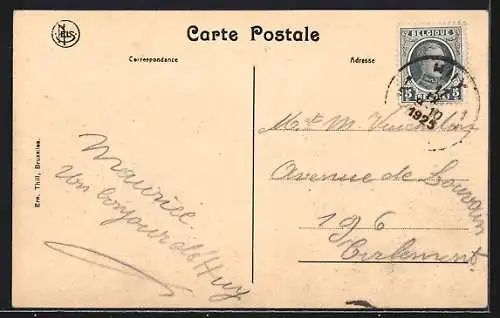 NELS
Carte Postale
Correspondance
Adresse
BELGIQUE
5 5
1925
Ern. Thill, Bruxelles.
Maurice
Un bonjour de Huy
M. et M.
Avenue de Louvain
196
Tirlemont